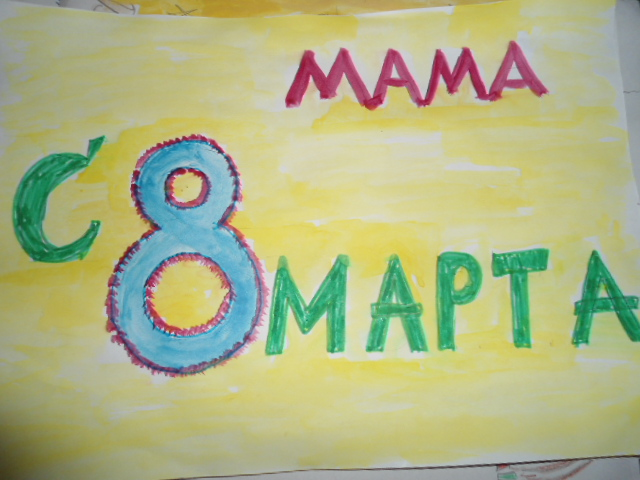 МАМА
С 8 МАРТА